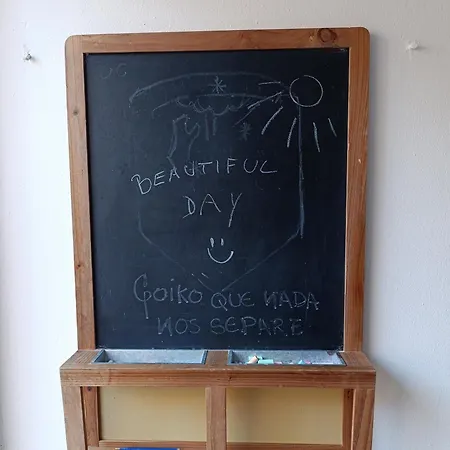 BEAUTIFUL
DAY
Goiko QUE NADA
NOS SEPARE